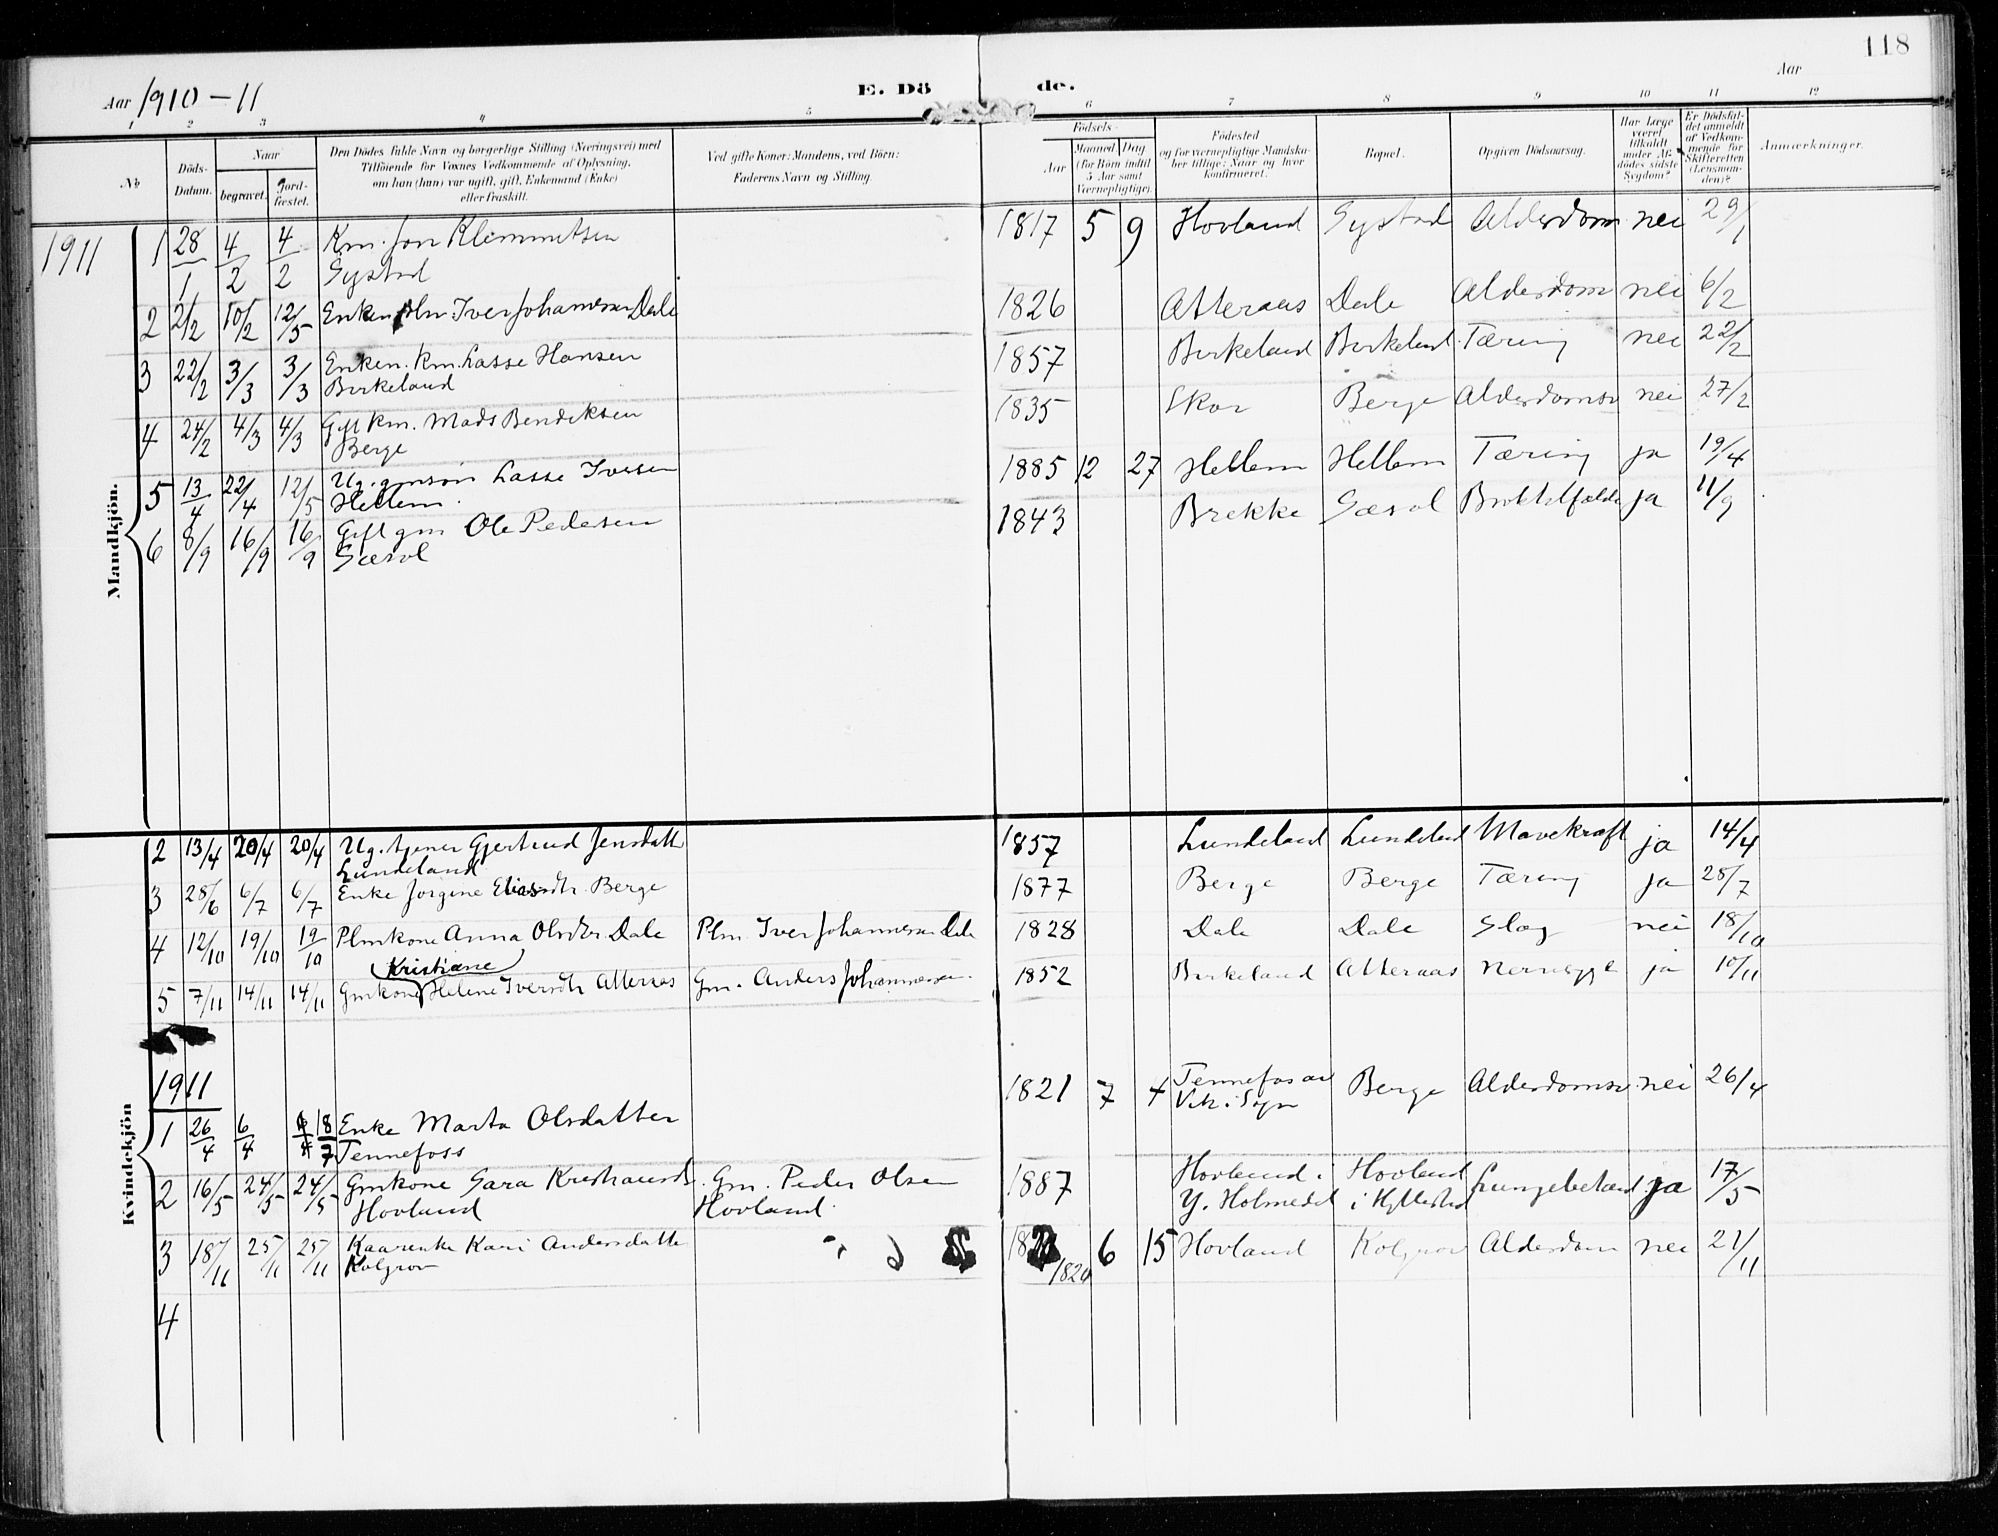 118
Aar 1910-11 E. Dö de. Aar
1 2 3 4 5 6 7 8 9 10 11 12
No
Döds-Datum.
Naar
begravet.
Jord-fæstet.
Den Dödes fulde Navn og borgerlige Stilling (Næringsvei) med
Tilföiende for Voxnes Vedkommende af Oplysning,
om han (hun) var ugift, gift, Enkemand (Enke)
eller fraskilt.
Ved gifte Koner: Mandens, ved Börn:
Faderens Navn og Stilling.
Födsels-
Aar
Maaned Dag
(for Börn indtil
5 Aar samt
Værnepligtige).
Födested
og for værnepligtige Mandska-
ber tillige: Naar og hvor
konfirmeret.
Bopæl.
Opgiven Dödsaarsag.
Har Læge
været
tilkaldt
under Af-
dödes sidste
Sygdom?
Er Dödsfal-
det anmeldt
af Vedkom-
mende for
Skifteretten
(Lensman-
den)?
Anmærkninger.
Mandkjön.
1911 1 28/1 4/2 4/2 Km. Jon Klemmetsen 1817 5 9 Hovland Systad Alderdom nei 29/1
Systad
2 2/2 10/2 12/5 Enkem. Plm. Iver Johannesen Dale 1826 Atteraas Dale Alderdom nei 6/2
3 22/2 3/3 3/3 Enkem. Km. Lasse Hansen 1857 Birkeland Birkeland Tæring nei 22/2
Birkeland
4 24/2 4/3 4/3 Gift Km. Mads Bendiksen 1835 Skor Berge Alderdomsv nei 27/2
Berge
5 13/4 22/4 12/5 Ug. gmsøn Lasse Iversen 1885 12 27 Hellem Hellem Tæring ja 19/4
Hellem
6 8/9 16/9 16/9 Gift gm Ole Pedersen 1843 Brekke Sæsol ja 11/9
Sæsol
Kvindekjön
2 13/4 20/4 20/4 Ug. tjener Gjertrud Jensdatt 1857 Lundeland Lundeland Mavekræft ja 14/4
Lundeland
3 28/6 6/7 6/7 Enke Jørgine Eliasdtr. Berge 1877 Berge Berge Tæring ja 28/7
4 12/10 19/10 19/10 Plmkone Anna Olsdtr Dale Plm. Iver Johannesen Dale 1828 Dale Dale Slag nei 18/10
(Kristiane
5 7/11 14/11 14/11 Gmkone Helene Iversdtr Atteraas Gm. Anders Johannessen. 1852 Birkeland Atteraas ja 10/11
1911
1 26/4 6/4 18/7 Enke Marta Olsdatter 1821 7 4 Tennefoss Vik i Sogn Berge Alderdomsv nei 26/4
Tennefoss
2 16/5 24/5 24/5 Gmkone Sara Kristiansdt. Gm. Peder Olsen 1887 Hovland i Y. Holmedal Hovland i Hyllestad Lungebetænd. ja 17/5
Hovland Hovland.
3 18/11 25/11 25/11 Kaarenke Kari Andersdatte 1820 6 15 Hovland Kolgrov Alderdom nei 21/11
Kolgrov
4